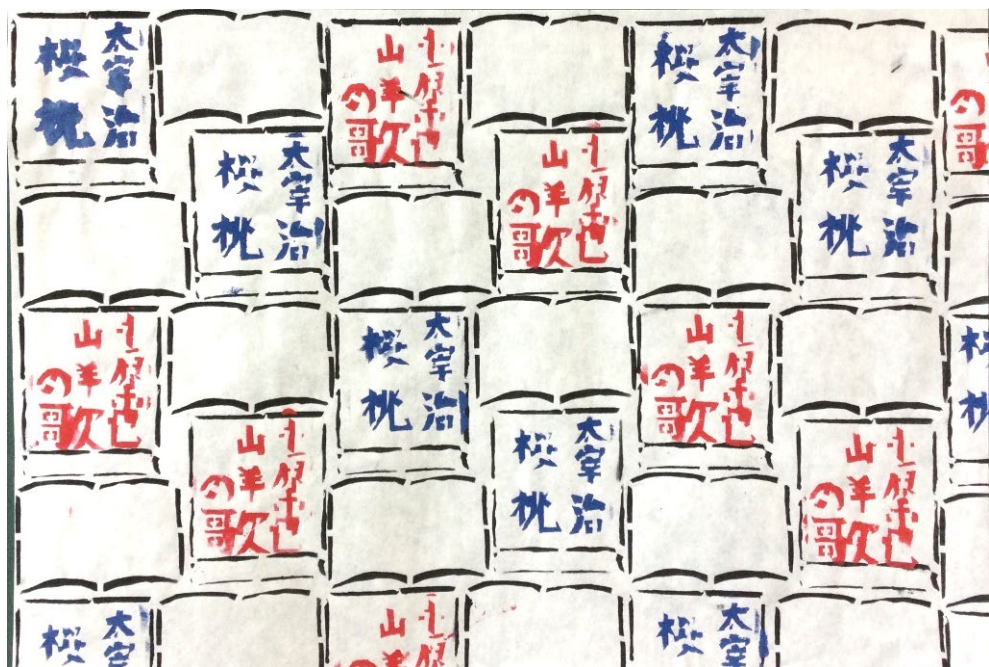 太宰治
桜桃
中原中也
山羊の歌
太宰治
桜桃
の歌
太宰治
桜桃
中原中也
山羊の歌
太宰治
桜桃
中原中也
山羊の歌
太宰治
桜桃
中原中也
山羊の歌
中原中也
山羊の歌
太宰治
桜桃
中原中也
山羊の歌
太宰
桜
山
太宰
桜